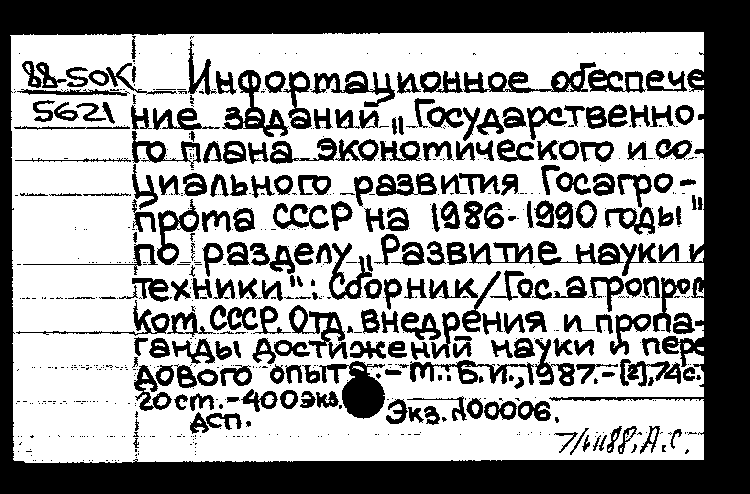 88-5ОК Информационное обеспече
5621 ние заданий „Государственно-
го плана экономического и со-
циального развития Госагро-
прома СССР на 1986-1990 годы"
по разделу „Развитие науки и
техники": Сборник/Гос. агропром
ком. СССР. Отд. внедрения и пропа-
ганды достижений науки и пере
дового опыта.- М.: Б.и., 1987.- [2], 74с.;
20 см. - 400 экз.
Экз. №00006.
АСП.